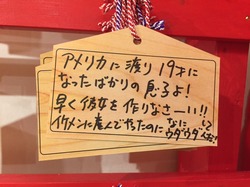 アメリカに渡り19才に
なったばかりの息子よ!
早く彼女を作りなさーい!!
イケメンに産んでやったのになにウダウダ